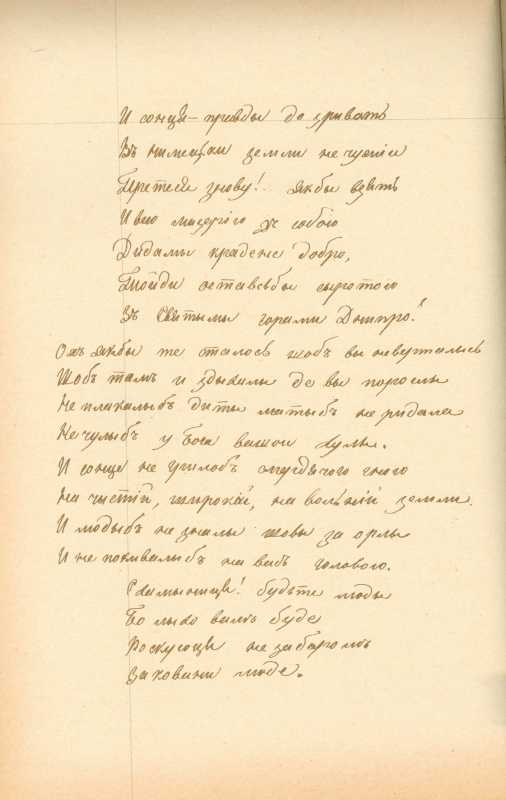 И сонця-правды дозривать
Въ нимецьки земли не чужіи
Претеся знову! Якбы взять
И всю мизерію зъ собою
Дидамы крадене добро,
Тойди оставсьбы сыротою
Зъ Святымы горами Дніпро!
Охъ якбы те сталось щобъ вы невертались
Щобъ тамъ и здыхалы де вы поросли
Не плакалыбъ диты матыбъ не ридала
Не чулыбъ у Бога вашои хулы.
И сонце не грилобъ смердячого гною
На чистій, широкій, на вольній земли.
И людыбъ не зналы що вы за орлы
И не покивалыбъ на васъ головою.
Схаменицця! будьте люды
Бо лыхо вамъ буде
Роскуюця незабаромъ
Заковани люде.